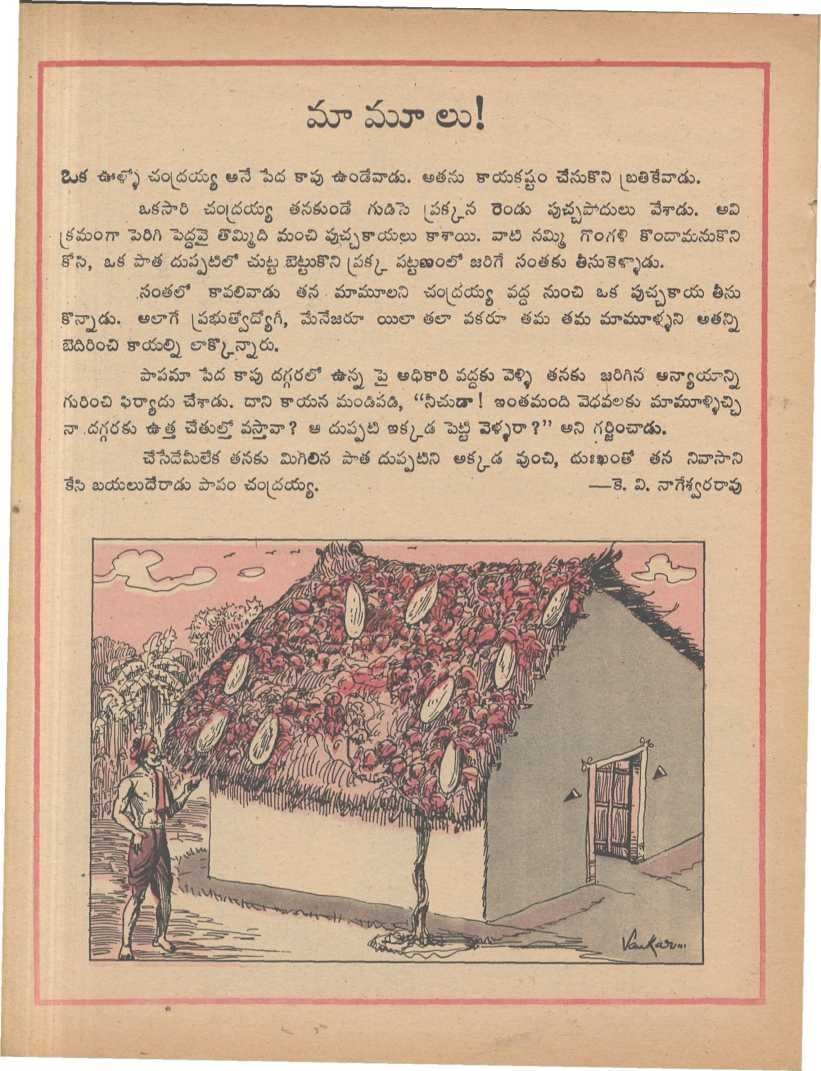 మా మూ లు!
ఒక ఊళ్ళో చంద్రయ్య అనే పేద కాపు ఉండేవాడు. అతను కాయకష్టం చేసుకొని బ్రతికేవాడు.
ఒకసారి చంద్రయ్య తనకుండే గుడిసె ప్రక్కన రెండు పుచ్చపాదులు వేశాడు. అవి
క్రమంగా పెరిగి పెద్దవై తొమ్మిది మంచి పుచ్చకాయలు కాశాయి. వాటి నమ్మి గొంగళి కొందామనుకొని
కోసి, ఒక పాత దుప్పటిలో చుట్ట బెట్టుకొని ప్రక్క పట్టణంలో జరిగే సంతకు తీసుకెళ్ళాడు.
సంతలో కావలివాడు తన మామూలని చంద్రయ్య వద్ద నుంచి ఒక పుచ్చకాయ తీసు
కొన్నాడు. అలాగే ప్రభుత్వోద్యోగీ, మేనేజరూ యిలా తలా వకరూ తమ తమ మామూళ్ళని అతన్ని
బెదిరించి కాయల్ని లాక్కొన్నారు.
పాపమా పేద కాపు దగ్గరలో ఉన్న పై అధికారి వద్దకు వెళ్ళి తనకు జరిగిన అన్యాయాన్ని
గురించి ఫిర్యాదు చేశాడు. దాని కాయన మండిపడి, "నీచుడా! ఇంతమంది వెధవలకు మామూళ్ళిచ్చి
నా దగ్గరకు ఉత్త చేతుల్తో వస్తావా? ఆ దుప్పటి ఇక్కడ పెట్టి వెళ్ళరా?" అని గర్జించాడు.
చేసేదేమీలేక తనకు మిగిలిన పాత దుప్పటిని అక్కడ వుంచి, దుఃఖంతో తన నివాసాని
కేసి బయలుదేరాడు పాపం చంద్రయ్య. —కె. వి. నాగేశ్వరరావు
Vankar...